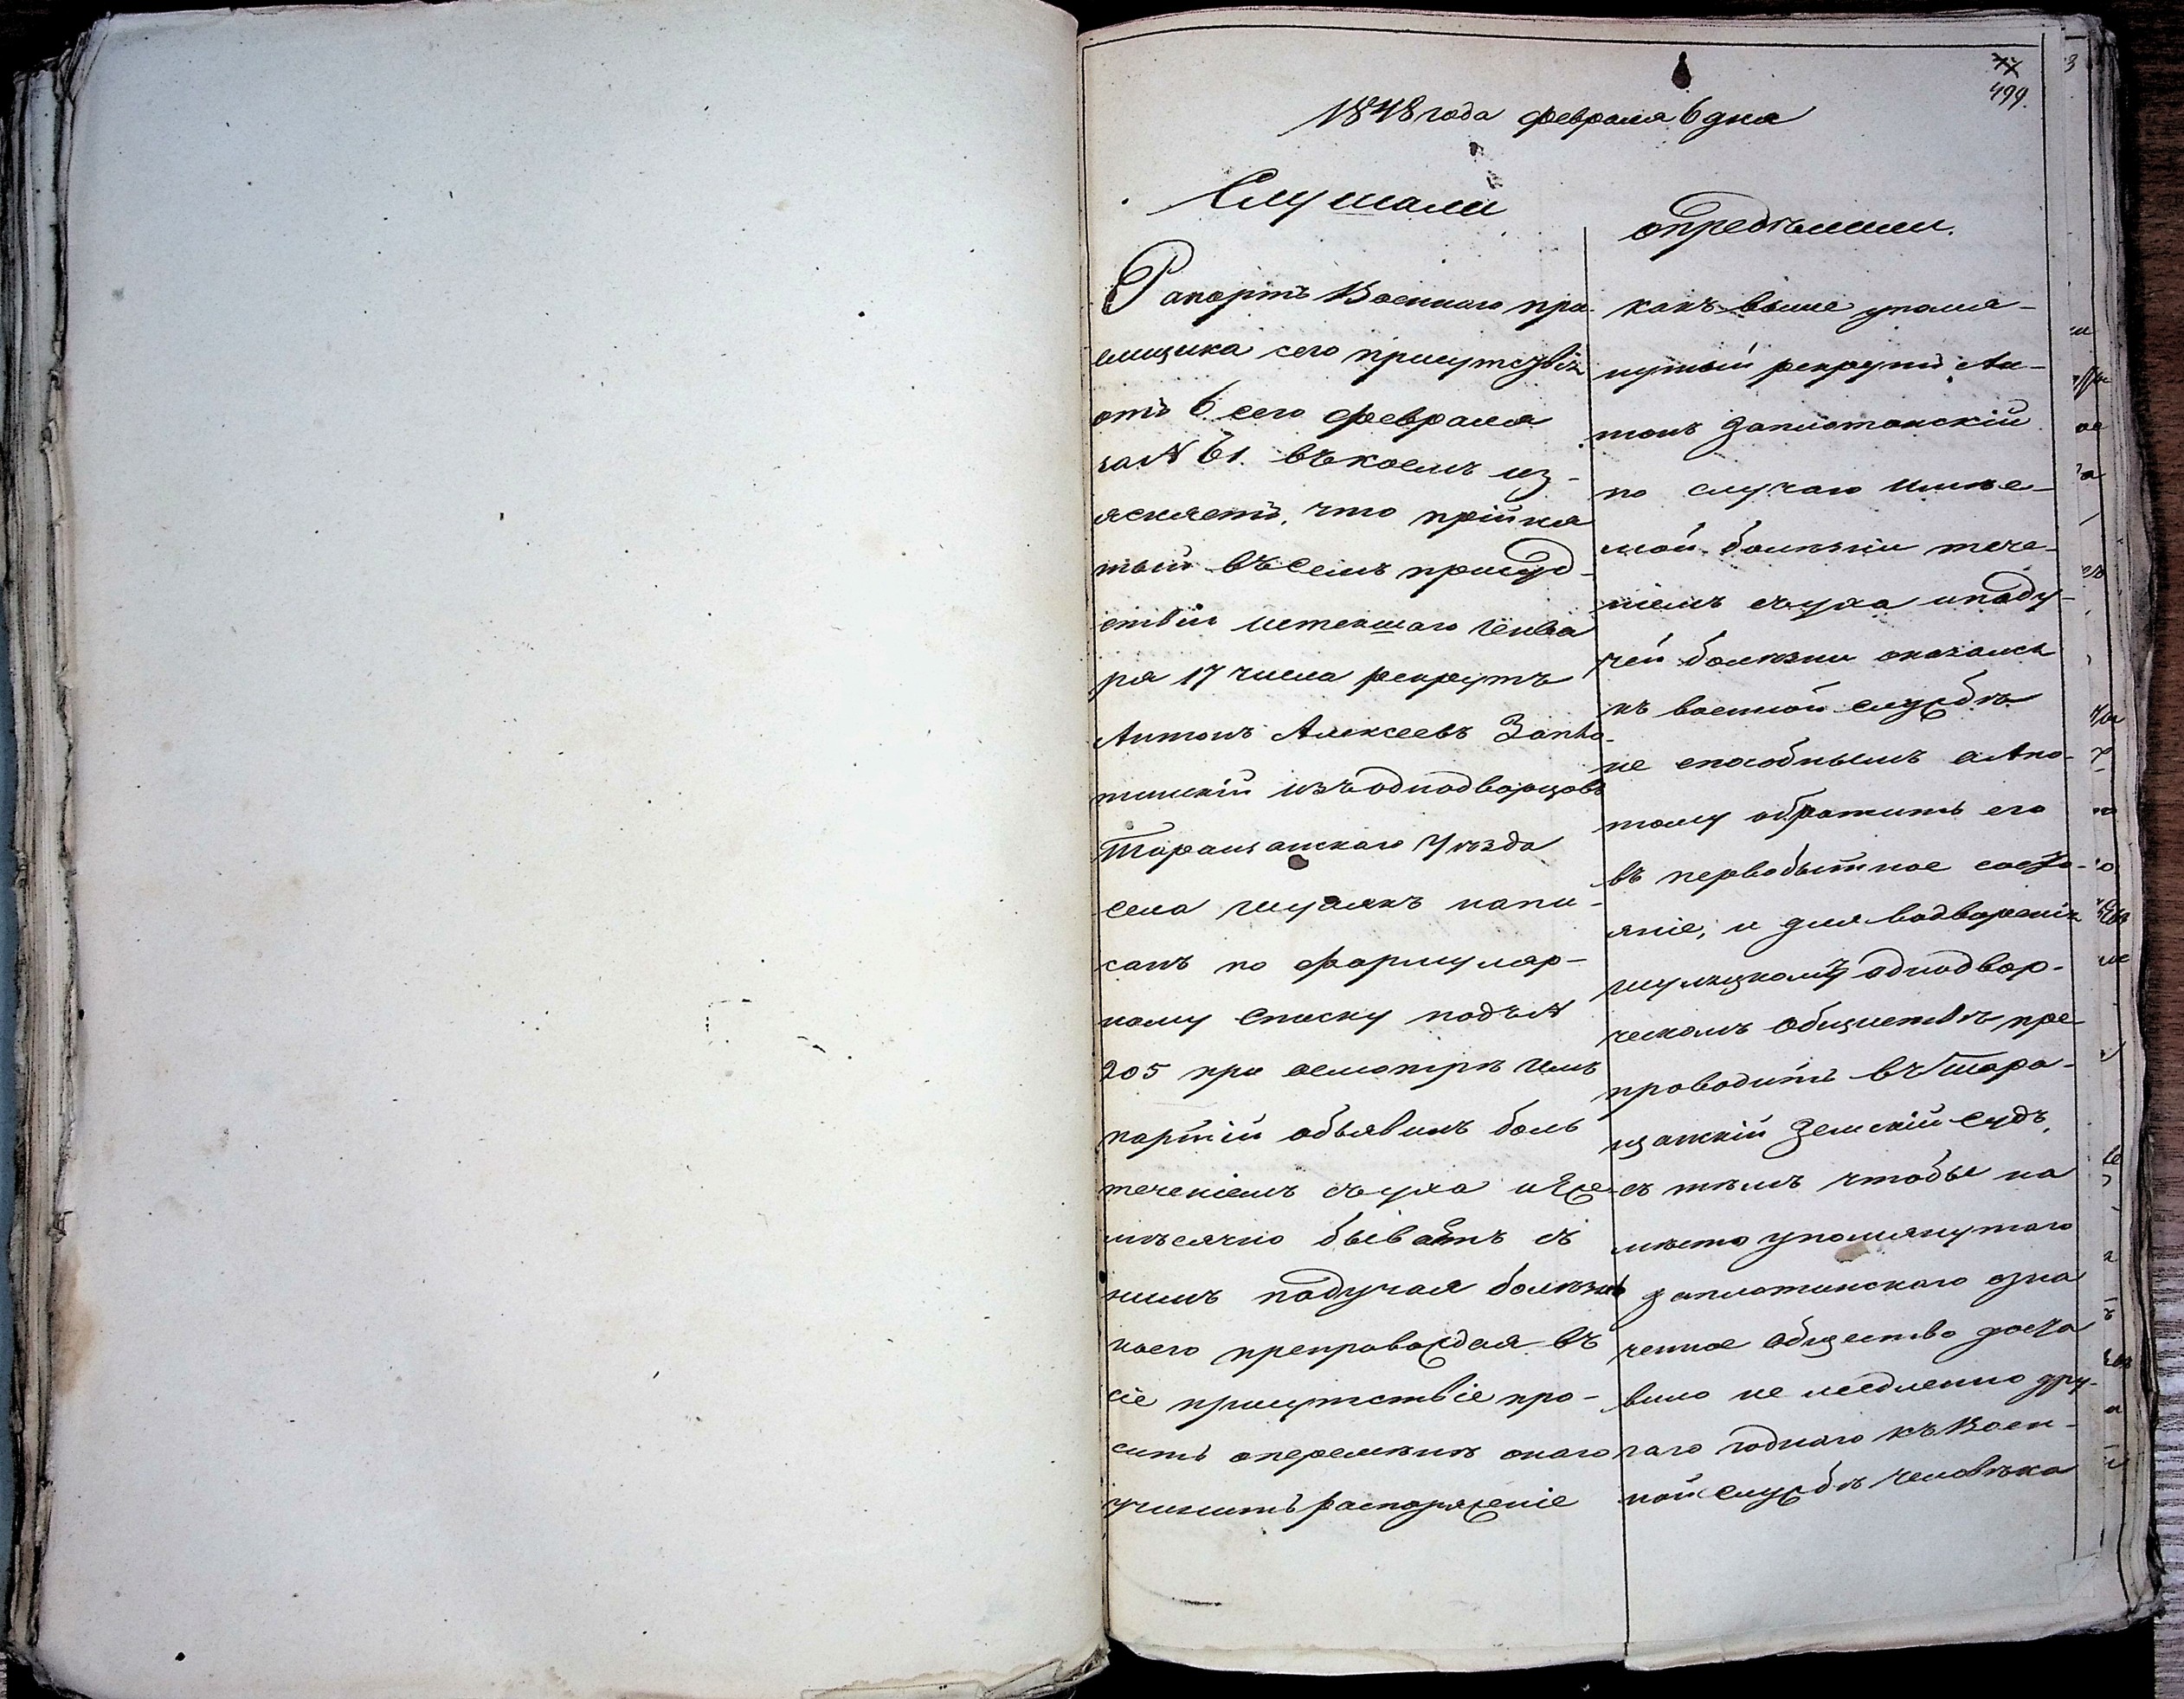 77
499.
1848 года февраля 6 дня
Слушали
Рапортъ Военнаго прі-
емщика сего присутствія
отъ 6 сего февраля
за № 61. въ коемъ из-
ясняетъ, что прійня
тый въ семъ присуд-
ствіи истекшаго Генва
ря 17 числа рекрутъ
Антонъ Алексеевъ Запло-
тинскій изъ однодворцовъ
Таращанскаго Уѣзда
села напи-
санъ по формуляр-
ному списку подъ №
205 при осмотрѣ имъ
партіи объявилъ боль
теченіемъ съ уха и Еже-
мѣсячно бываетъ съ
нимъ падучая болѣзнь
коего препровождая въ
сіе присутствіе про-
ситъ о перемѣнѣ онаго
учинить распоряженіе
опредѣлили.
какъ выше упомя-
нутый рекрутъ Ан-
тонъ Заплотанскій
по случаю имѣе-
мой болѣзни тече-
ніемъ съ уха и паду-
чей болѣзни оказался
къ военной службѣ
не способнымъ а по
тому обратить его
въ первобытное состо-
яніе, и для водворенія
однодвор-
ческомъ обществѣ пре
проводить въ Тара-
щанскій Земскій Судъ,
съ тѣмъ чтобы на
мѣсто упомянутаго
Заплотинскаго озна
ченное общество доста
вило не медленно дру-
гаго годнаго къ Воен-
ной службѣ человѣка